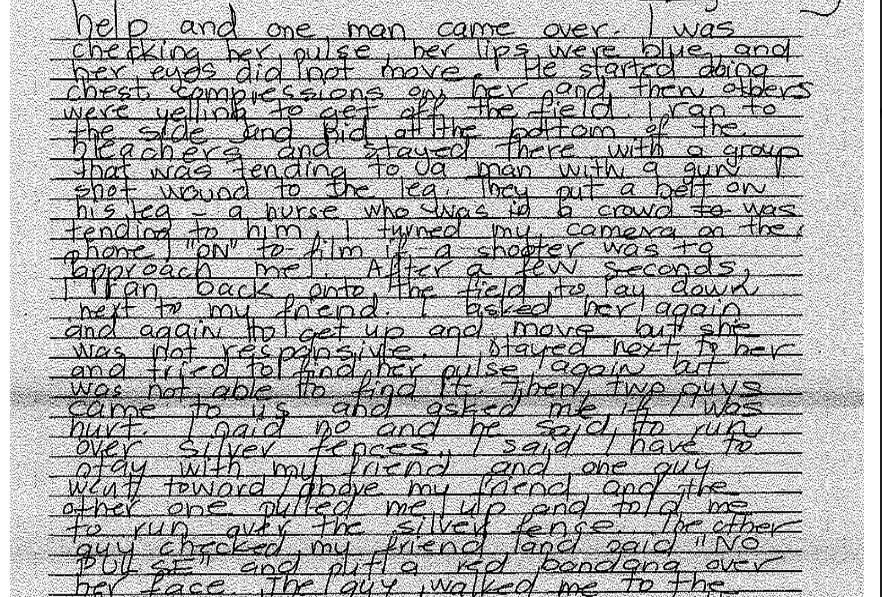 help and one man came over. I was
checking her pulse, her lips were blue, and
her eyes did not move. He started doing
chest compressions on her and then others
were yelling to get off the field. I ran to
the side and hid at the bottom of the
bleachers and stayed there with a group
that was tending to a man with a gun
shot wound to the leg. They put a belt on
his leg - a nurse who was in a crowd to was
tending to him. I turned my camera on the
phone "ON" to film if a shooter was to
approach me. After a few seconds,
I ran back onto the field to lay down
next to my friend. I asked her again
and again to get up and move but she
was not responsive. I stayed next to her
and tried to find her pulse again but
was not able to find it. Then two guys
came to us and asked me if I was
hurt. I said no and he said to run
over silver fences. I said I have to
stay with my friend and one guy
went toward/above my friend and the
other one pulled me up and told me
to run over the silver fence. The other
guy checked my friend and said "NO
PULSE" and put a red bandana over
her face. The guy walked me to the